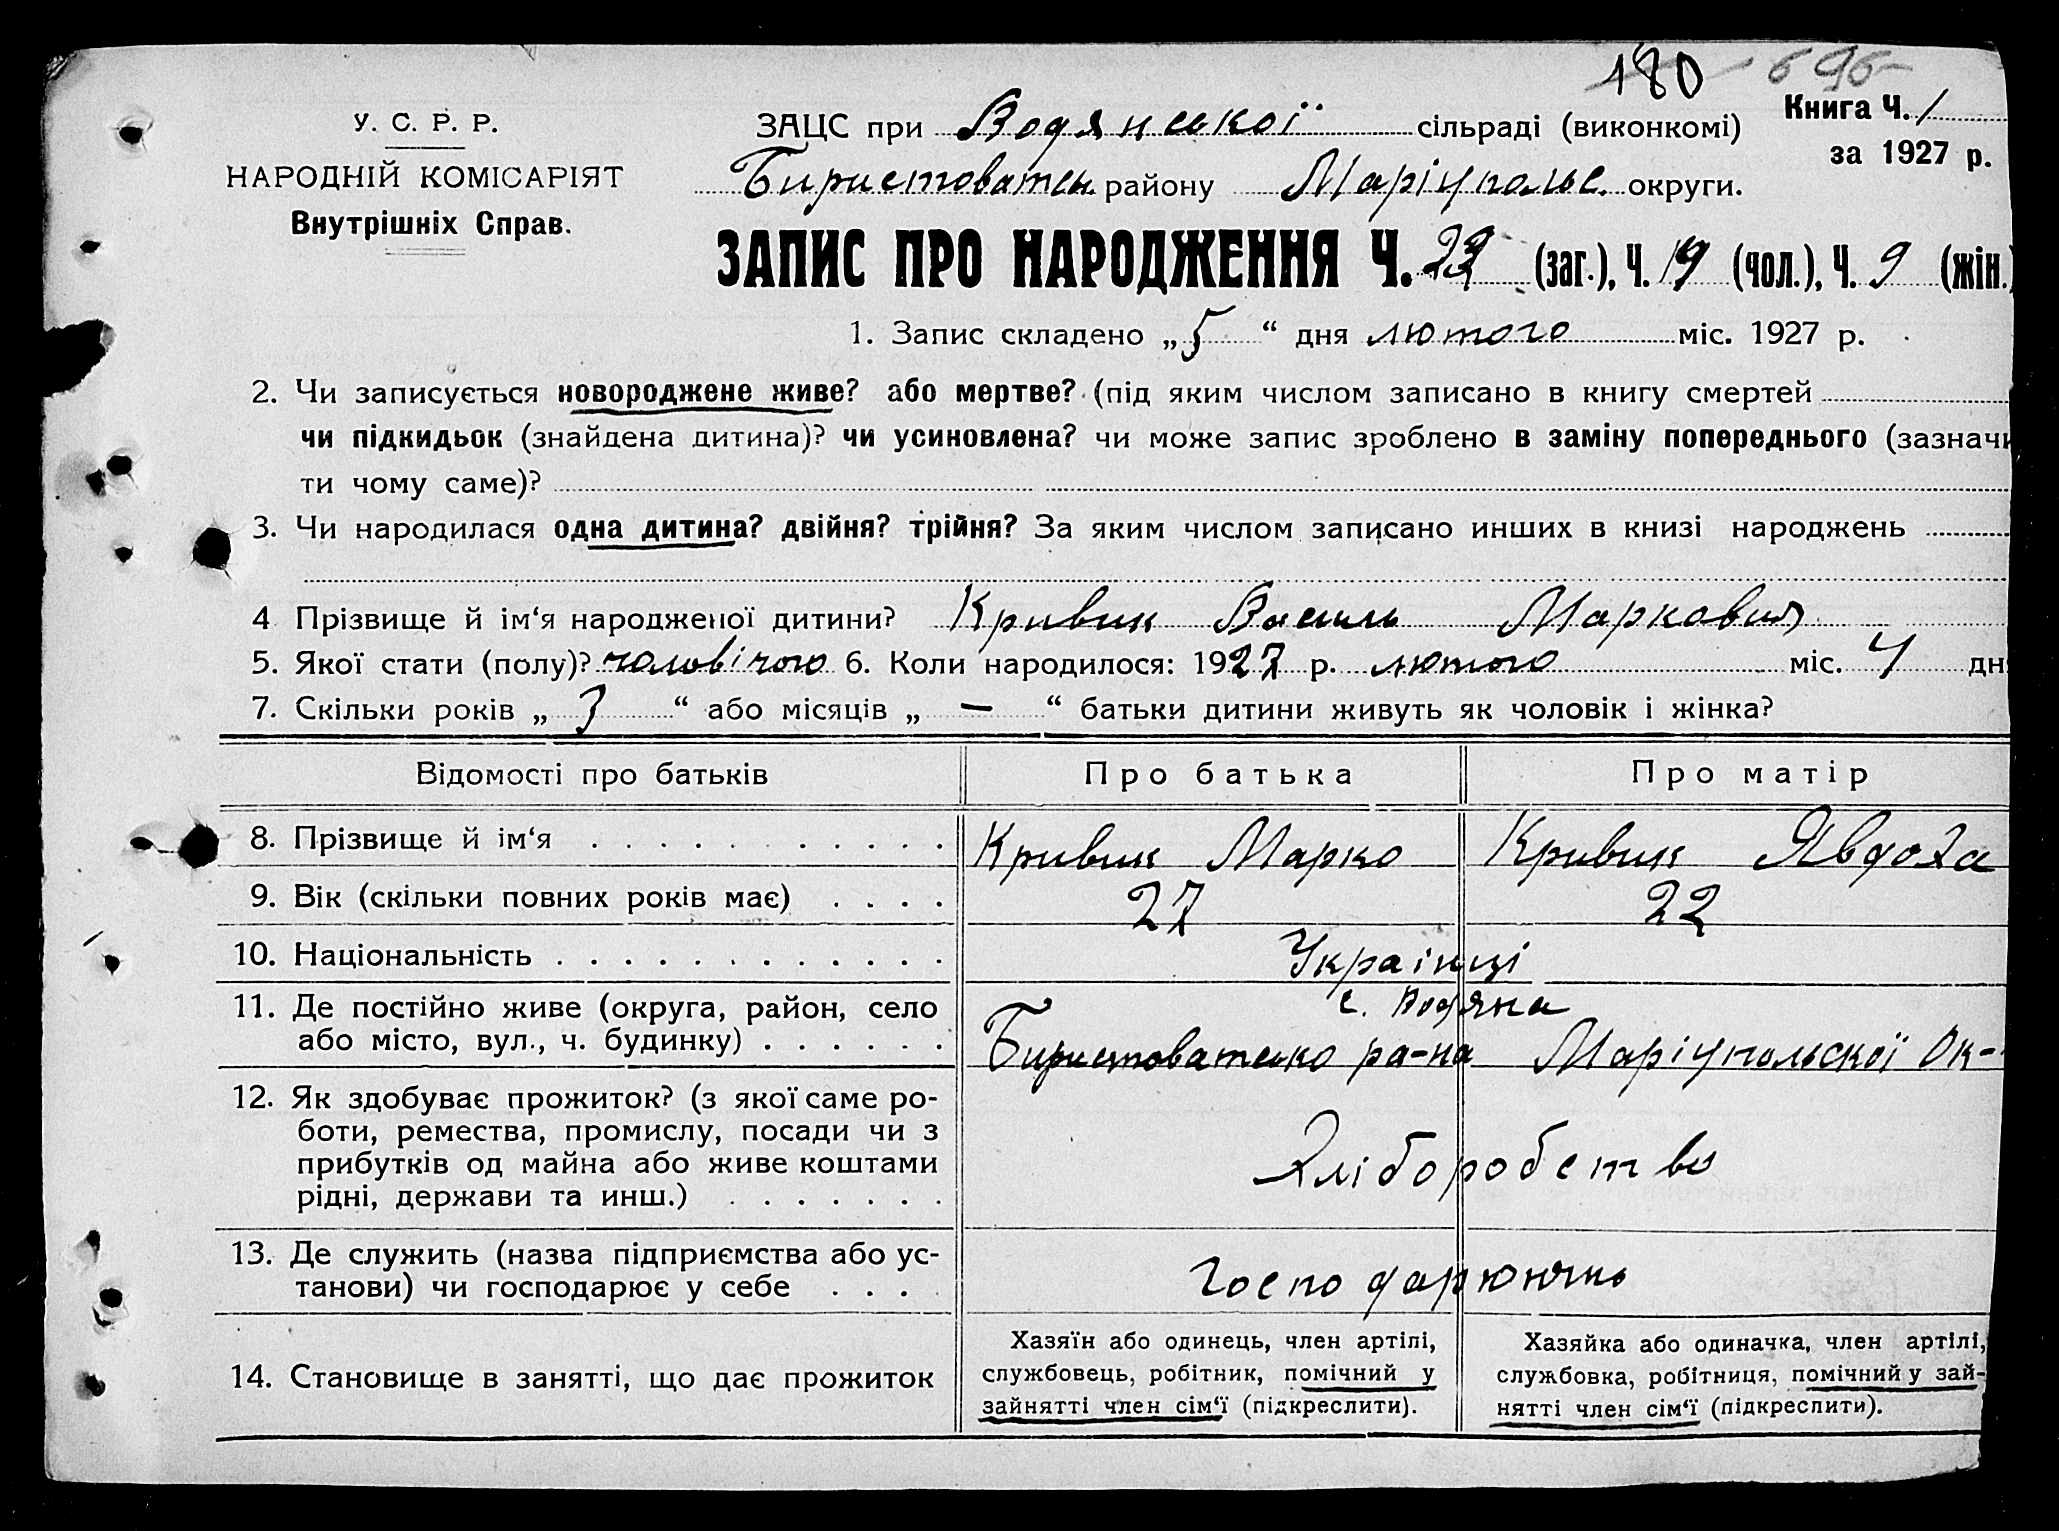 180 695
У. С. Р. Р.
НАРОДНІЙ КОМІСАРІЯТ
Внутрішніх Справ.
ЗАЦС при Водянської сільраді (виконкомі)
Книга Ч. 1
за 1927 р.
району Маріупольс. округи.
ЗАПИС ПРО НАРОДЖЕННЯ Ч. (заг.), Ч. 19 (чол.), Ч. 9 (жін.)
1. Запис складено „5“ дня лютого міс. 1927 р.
2. Чи записується новороджене живе? або мертве? (під яким числом записано в книгу смертей
чи підкидьок (знайдена дитина)? чи усиновлена? чи може запис зроблено в заміну попереднього (зазначи
ти чому саме)?
3. Чи народилася одна дитина? двійня? трійня? За яким числом записано инших в книзі народжень
4 Прізвище й ім‘я народженої дитини? Кривик Василь Маркович
5. Якої стати (полу)? чоловічого 6. Коли народилося: 1927 р. лютого міс. 4 дн
7. Скільки років „ 3 “ або місяців „ — “ батьки дитини живуть як чоловік і жінка?
Відомості про батьків Про батька Про матір
8. Прізвище й ім‘я Кривик Марко Кривик Явдоха
9. Вік (скільки повних років має) 27 22
10. Національність Українці
11. Де постійно живе (округа, район, село с. Водяна
або місто, вул., ч. будинку) ра-на Маріупольскої Ок-
12. Як здобуває прожиток? (з якої саме ро-
боти, ремества, промислу, посади чи з
прибутків од майна або живе коштами Хліборобство
рідні, держави та инш.)
13. Де служить (назва підприємства або ус-
танови) чи господарює у себе Господарюють
Хазяїн або одинець, член артілі, Хазяйка або одиначка, член артілі,
14. Становище в занятті, що дає прожиток службовець, робітник, помічний у службовка, робітниця, помічний у зай-
зайнятті член сім‘ї (підкреслити). нятті член сім‘ї (підкреслити).